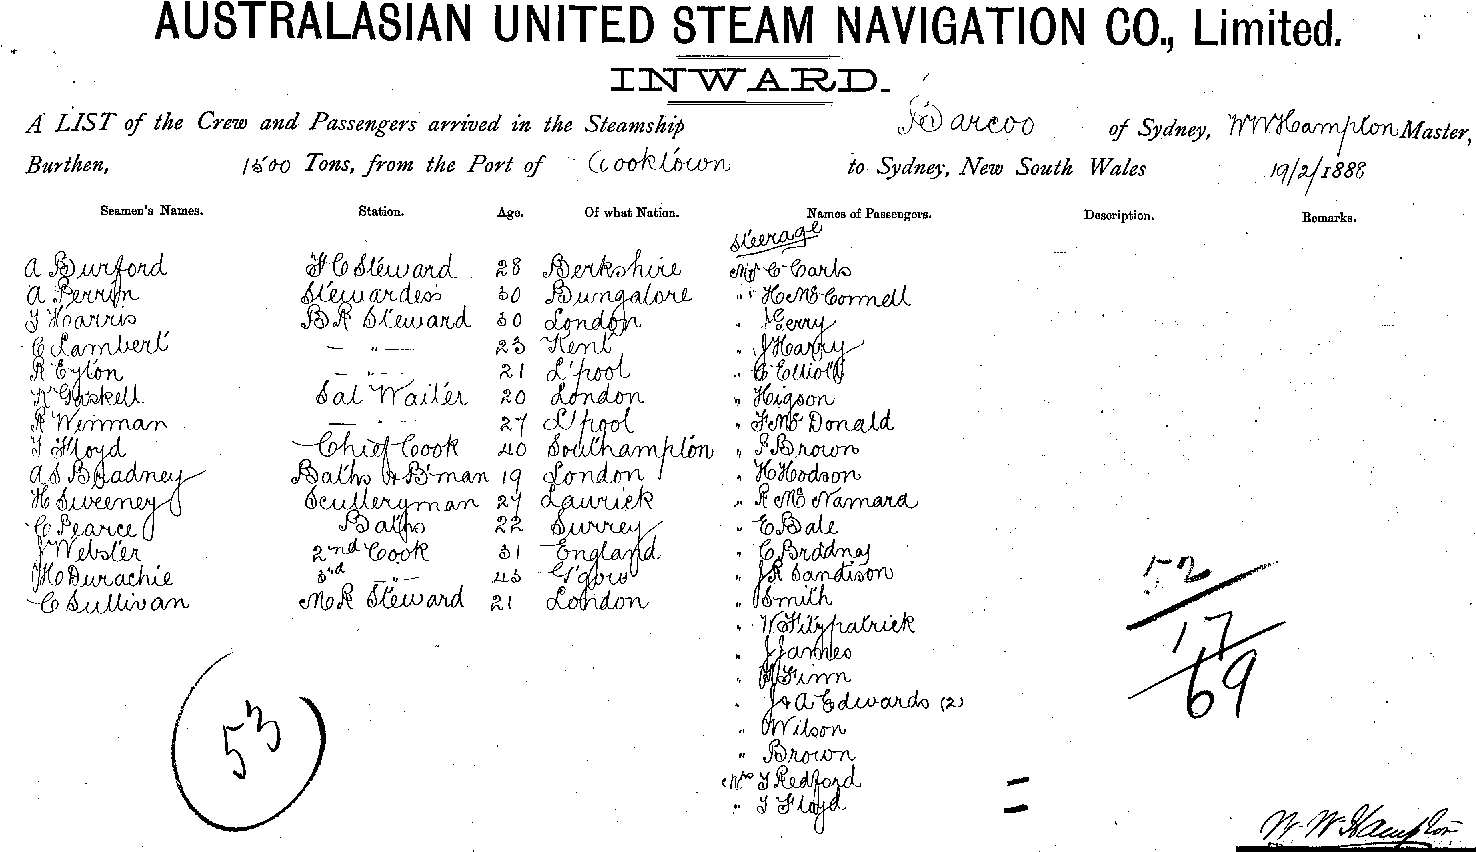 AUSTRALASIAN UNITED STEAM NAVIGATION CO., Limited.
INWARD.
A LIST of the Crew and Passengers arrived in the Steamship Barcoo of Sydney, W W Hampton Master,
Burthen, 1500 Tons, from the Port of Cooktown to Sydney, New South Wales 19/2/1888
Seamen's Names. Station. Age. Of what Nation. Names of Passengers. Description. Remarks.
Steerage
A Burford F C Steward 28 Berkshire Mr C Carls
A Perrin Stewardess 30 Bungalore " H McConnell
T Harris B R Steward 30 London " Gerry
C Lambert — " — 23 Kent " J Harry
R Eyton — " — 21 L'pool " C Elliott
W Gaskell Sal Waiter 20 London " Higson
R Winman — " — 27 L'pool " F McDonald
T Floyd Chief Cook 40 Southampton " P Brown
A S Bradney Baths & B'man 19 London " H Hodson
H Sweeney Sculleryman 27 Laurick " R McNamard
C Pearce Baths 22 Surrey " E Bale
J Webster 2nd Cook 31 England " C Brddney
H Durachie 3rd — " — 43 G'gow " J R Sandison
C Sullivan M R Steward 21 London " Smith
" W Fitzpatrick
" J James
" Finn
" J & A Edwards (2)
" Wilson
" Brown
Mrs T Redford
" T Floyd
52
17
69
53
W W Hampton